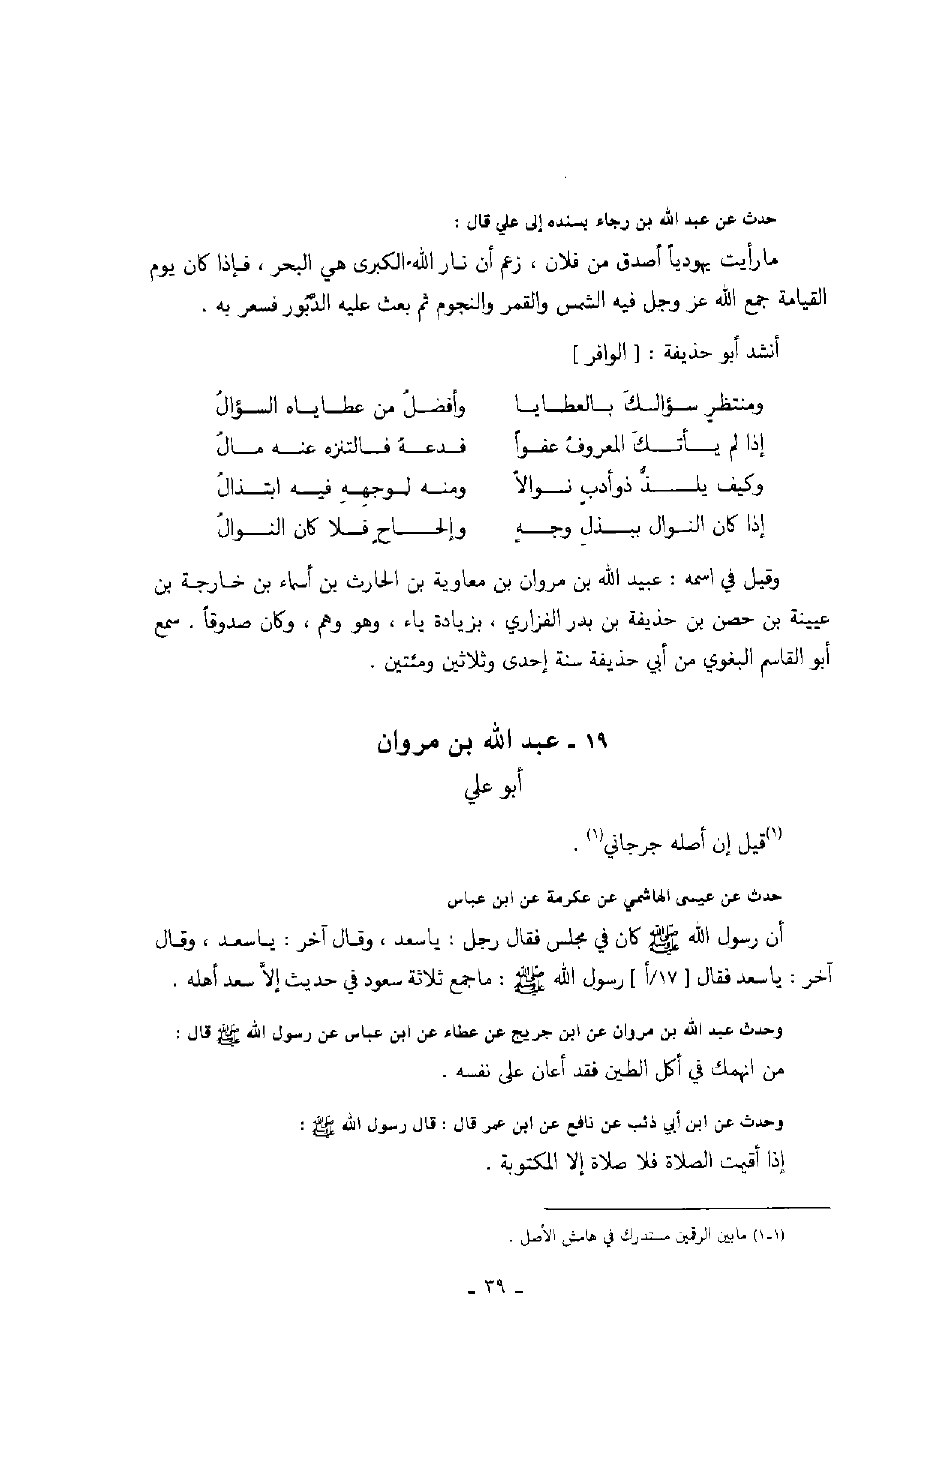 حدث عن عبد الله بن رجاء بسنده إلى علي قال :
مارأيت يهودياً أصدق من فلان ، زعم أن نار الله الكبرى هي البحر ، فإذا كان يوم
القيامة جمع الله عز وجل فيه الشمس والقمر والنجوم ثم بعث عليه الدَّبُور فسعر به .
أنشد أبو حذيفة : [ الوافر ]
ومنتظرٍ سؤالكَ بالعطايا وأفضلُ من عطاياه السؤالُ
إذا لم يأتكَ المعروفُ عفواً فدعهُ فالتنزه عنه مالُ
وكيف يلذُّ ذوأدبٍ نوالاً ومنه لوجههِ فيه ابتذالُ
إذا كان النوال ببذلِ وجهٍ وإلحاحٍ فلا كان النوالُ
وقيل في اسمه : عبيد الله بن مروان بن معاوية بن الحارث بن أسماء بن خارجة بن
عيينة بن حصن بن حذيفة بن بدر الفزاري ، بزيادة ياء ، وهو وهم ، وكان صدوقاً . سمع
أبو القاسم البغوي من أبي حذيفة سنة إحدى وثلاثين ومئتين .
١٩ ـ عبد الله بن مروان
أبو علي
(١)قيل إن أصله جرجاني(١) .
حدث عن عيسى الهاشمي عن عكرمة عن ابن عباس
أن رسول الله ﷺ كان في مجلس فقال رجل : ياسعد ، وقال آخر : ياسعد ، وقال
آخر : ياسعد فقال [ ١٧/أ ] رسول الله ﷺ : ماجمع ثلاثة سعود في حديث إلاَّ سعد أهله .
وحدث عبد الله بن مروان عن ابن جريج عن عطاء عن ابن عباس عن رسول الله ﷺ قال :
من انهمك في أكل الطين فقد أعان على نفسه .
وحدث عن ابن أبي ذئب عن نافع عن ابن عمر قال : قال رسول الله ﷺ :
إذا أقيمت الصلاة فلا صلاة إلا المكتوبة .
(١-١) مابين الرقمين مستدرك في هامش الأصل .
ـ ٣٩ ـ